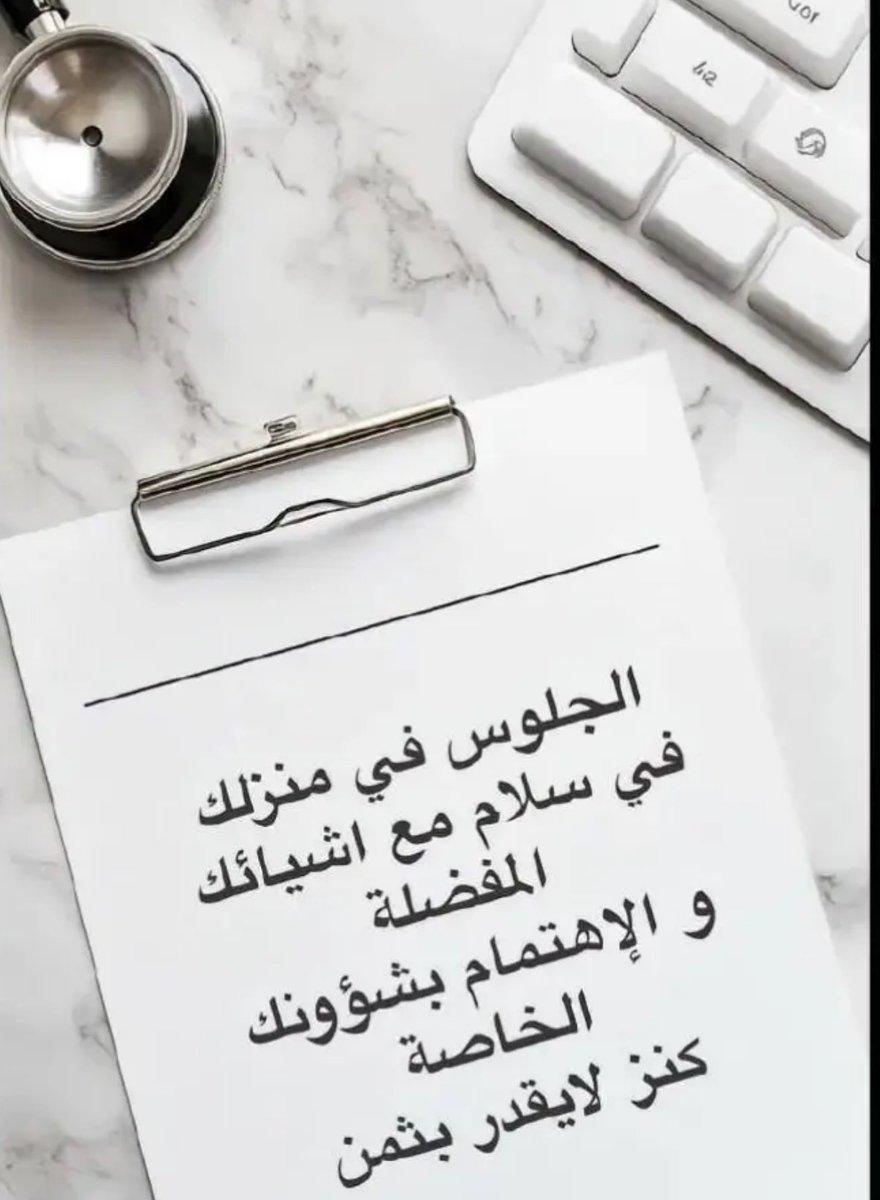 الجلوس في منزلك
في سلام مع اشيائك
المفضلة
و الإهتمام بشؤونك
الخاصة
كنز لايقدر بثمن